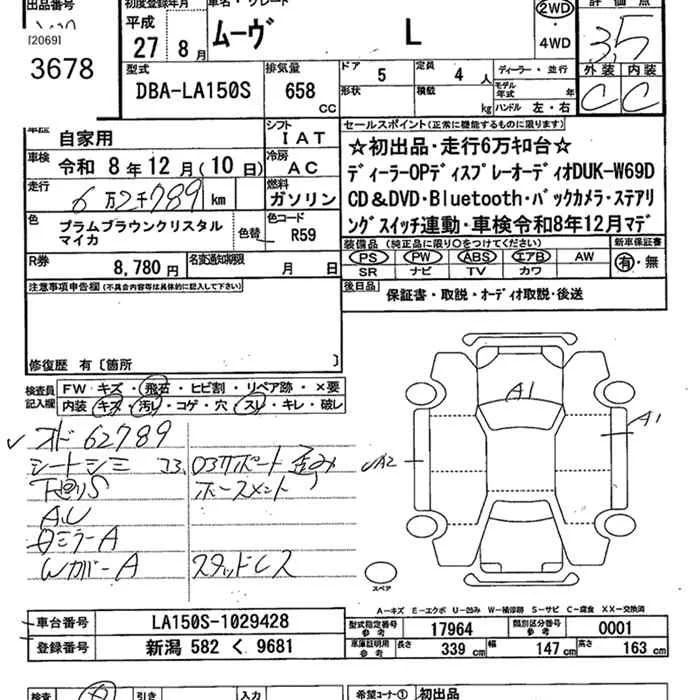 出品番号
[2069]
3678
初度登録年月
平成
27年8月
車名・グレード
ムーヴ L
2WD
・
4WD
評価点
3.5
外装 内装
C C
型式
DBA-LA150S
排気量
658 CC
ドア 5
形状
定員 4 人
積載 kg
ディーラー・並行
モデル年式 年
ハンドル 左・右
車歴 自家用
車検 令和 8年12月(10日)
走行 6万2千789 km
色 プラムブラウンクリスタル
マイカ
色替
R券 8,780 円
名変通知期限 月 日
シフト
IAT
冷房
AC
燃料
ガソリン
色コード
R59
セールスポイント(正常に機能するものに限ります)
☆初出品・走行6万キロ台☆
ディーラーOPディスプレーオーディオDUK-W69D
CD&DVD・Bluetooth・バックカメラ・ステアリ
ングスイッチ連動・車検令和8年12月マデ
装備品(純正品に限り○をつけてください)
PS PW ABS エアB AW
SR ナビ TV カワ
新車保証書
有・無
後日品 保証書・取説・オーディオ取説・後送
注意事項申告欄(不具合内容等は具体的に記入して下さい)
修復歴 有〔箇所 〕
検査員
記入欄
FW キズ・飛石・ヒビ割・リペア跡・×要
内装 キズ・汚レ・コゲ・穴・スレ・キレ・破レ
オド 62789
シートシミ コスレ
下回りS
A.U
ミラーA
WカバーA
スタッドレス
A1
A1
A2
スペア
A-キズ E-エクボ U-凹み W-補修跡 S-サビ C-腐食 XX-交換済
車台番号 LA150S-1029428
登録番号 新潟 582 く 9681
型式指定番号
参考
17964
類別区分番号
参考
0001
車庫証明用
参考
長さ 339 cm 幅 147 cm 高さ 163 cm
検査
引き
入力
希望コーナー① 初出品